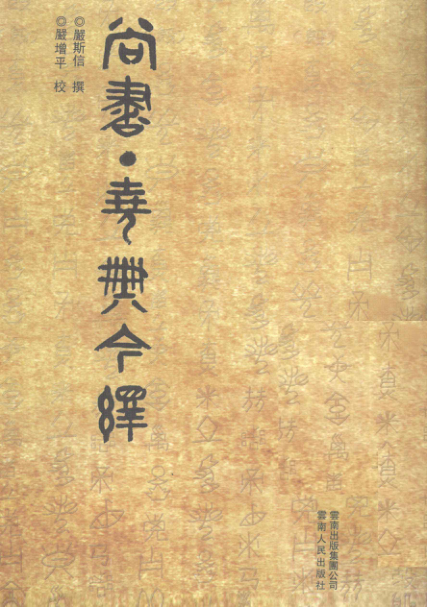 尚書·堯典今繹
◎嚴斯信 撰
◎嚴增平 校
雲南出版集團公司
雲南人民出版社